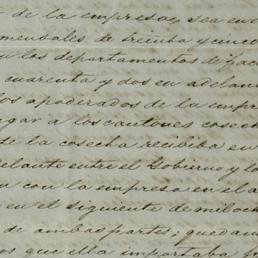 de la empresa, sea en
mensuales de treinta y cinco
los departamentos de Zac
cuarenta y dos en adelan
los apoderados de la empr
gar a los cantones cosec
de la cosecha recibida en
elante entre el Gobierno y lo
con la empresa en el a
en el siguiente de mil och
de ambas partes; quedan
os que ella importaba